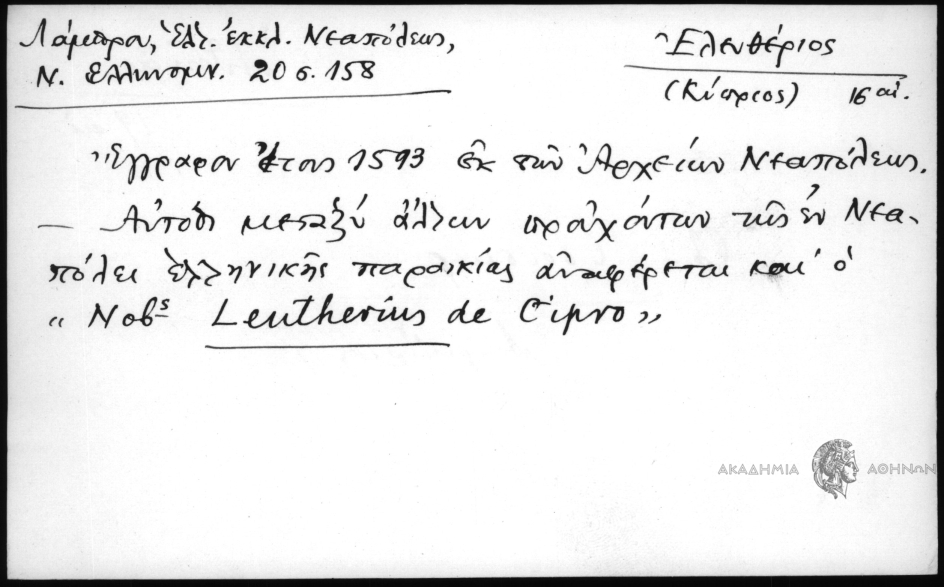 Λάμπρου, Ἑλλ. ἐκκλ. Νεαπόλεως,
Ν. Ἑλληνομν. 20 σ. 158
Ἐλευθέριος
(Κύπριος) 16 αἰ.
Ἔγγραφον ἔτους 1593 ἐκ τῶν Ἀρχείων Νεαπόλεως.
— Αὐτόθι μεταξὺ ἄλλων προὐχόντων τῆς ἐν Νεα-
πόλει ἑλληνικῆς παροικίας ἀναφέρεται καὶ ὁ
« Nobˢ Leutherius de Cipro »
ΑΚΑΔΗΜΙΑ ΑΘΗΝΩΝ